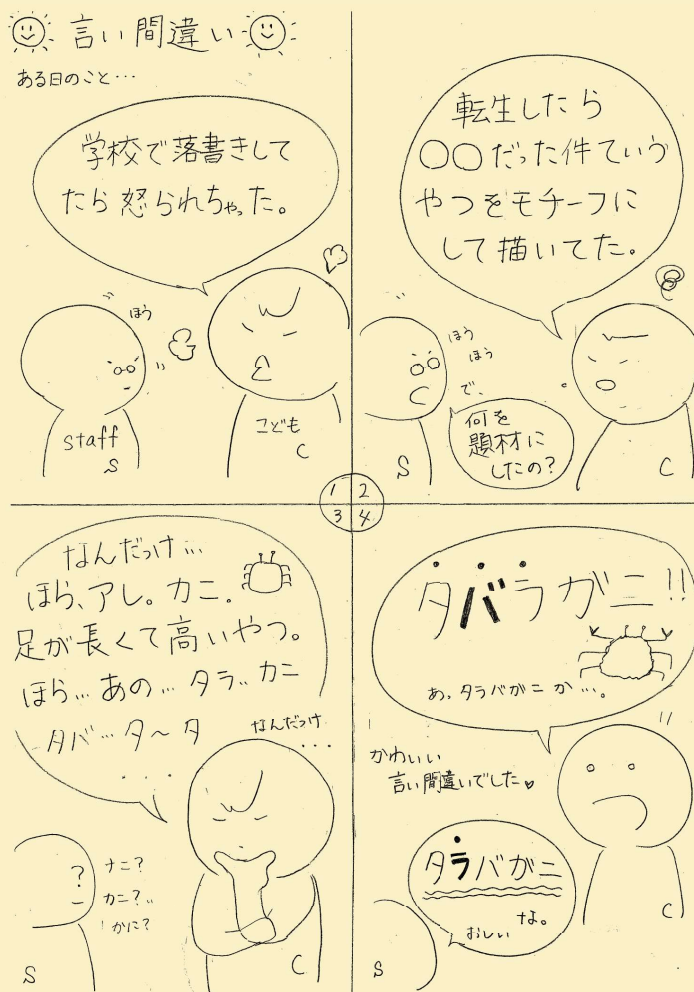 言い間違い
ある日のこと…
学校で落書きして
たら怒られちゃった。
ほう
staff
S
こども
C
転生したら
○○だった件ていう
やつをモチーフに
して描いてた。
ほう
ほう
で、
何を
題材に
したの?
S
C
1
2
3
4
なんだっけ…
ほら、アレ。カニ。
足が長くて高いやつ。
ほら…あの…タラ..カニ
タバ…タ〜タ
なんだっけ
...
...
ナニ?
カニ?..
かに?
?
S
C
タバラガニ!!
あ。タラバがニか…。
かわいい
言い間違いでした♥
タラバがニ
な。
おしい
S
C